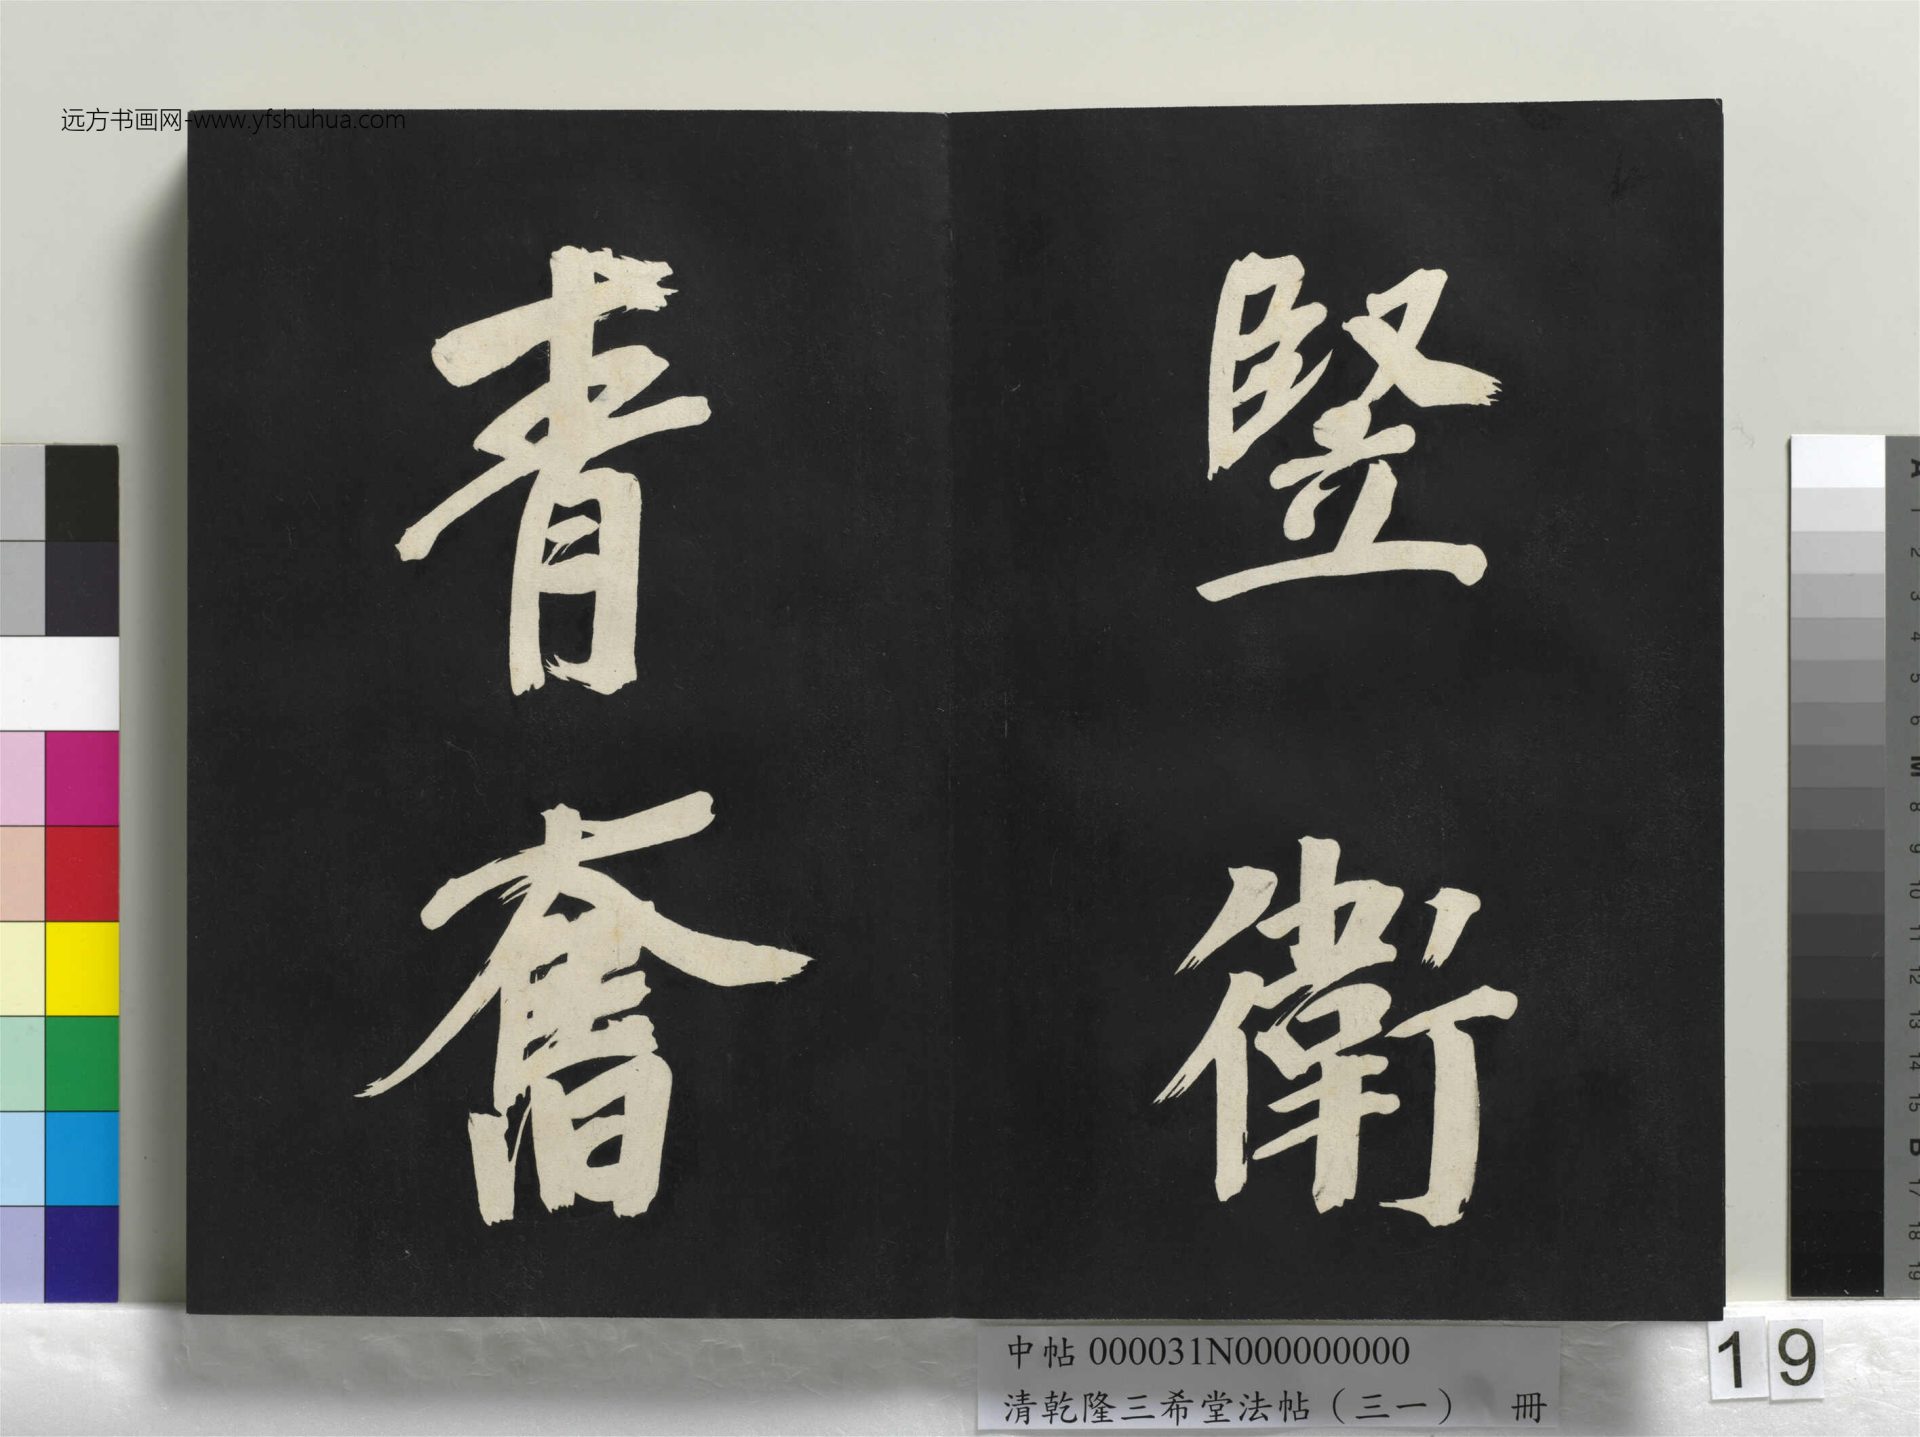 远方书画网-www.yfshuhua.com
竪衛
青奮
中帖 000031N000000000
清乾隆三希堂法帖（三一） 冊
19
A
1
2
3
4
5
6
M
8
9
10
11
12
13
14
15
B
17
18
19